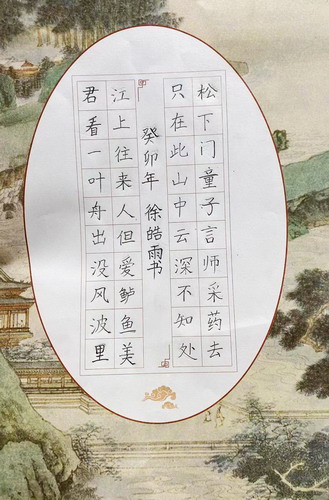 松下门童子言师采药去
只在此山中云深不知处
癸卯年 徐皓雨书
江上往来人但爱鲈鱼美
君看一叶舟出没风波里